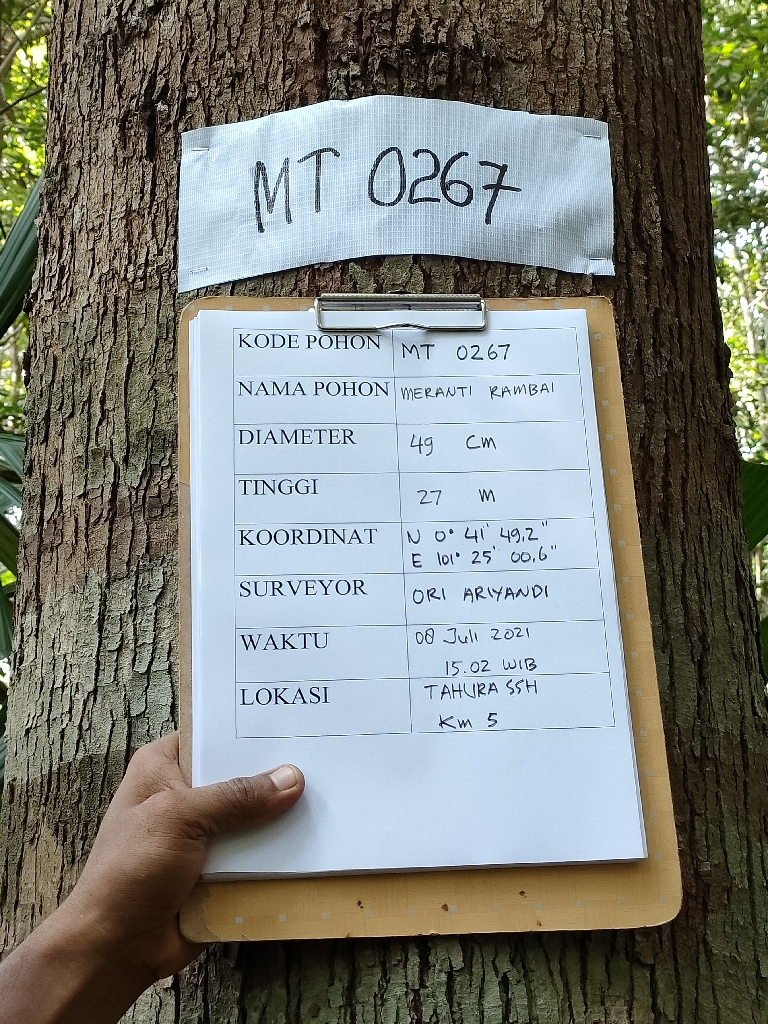 MT 0267
KODE POHON MT 0267
NAMA POHON MERANTI RAMBAI
DIAMETER 49 Cm
TINGGI 27 M
KOORDINAT N 0° 41' 49,2"
E 101° 25' 00,6"
SURVEYOR ORI ARIYANDI
WAKTU 08 Juli 2021
15.02 WIB
LOKASI TAHURA SSH
Km 5